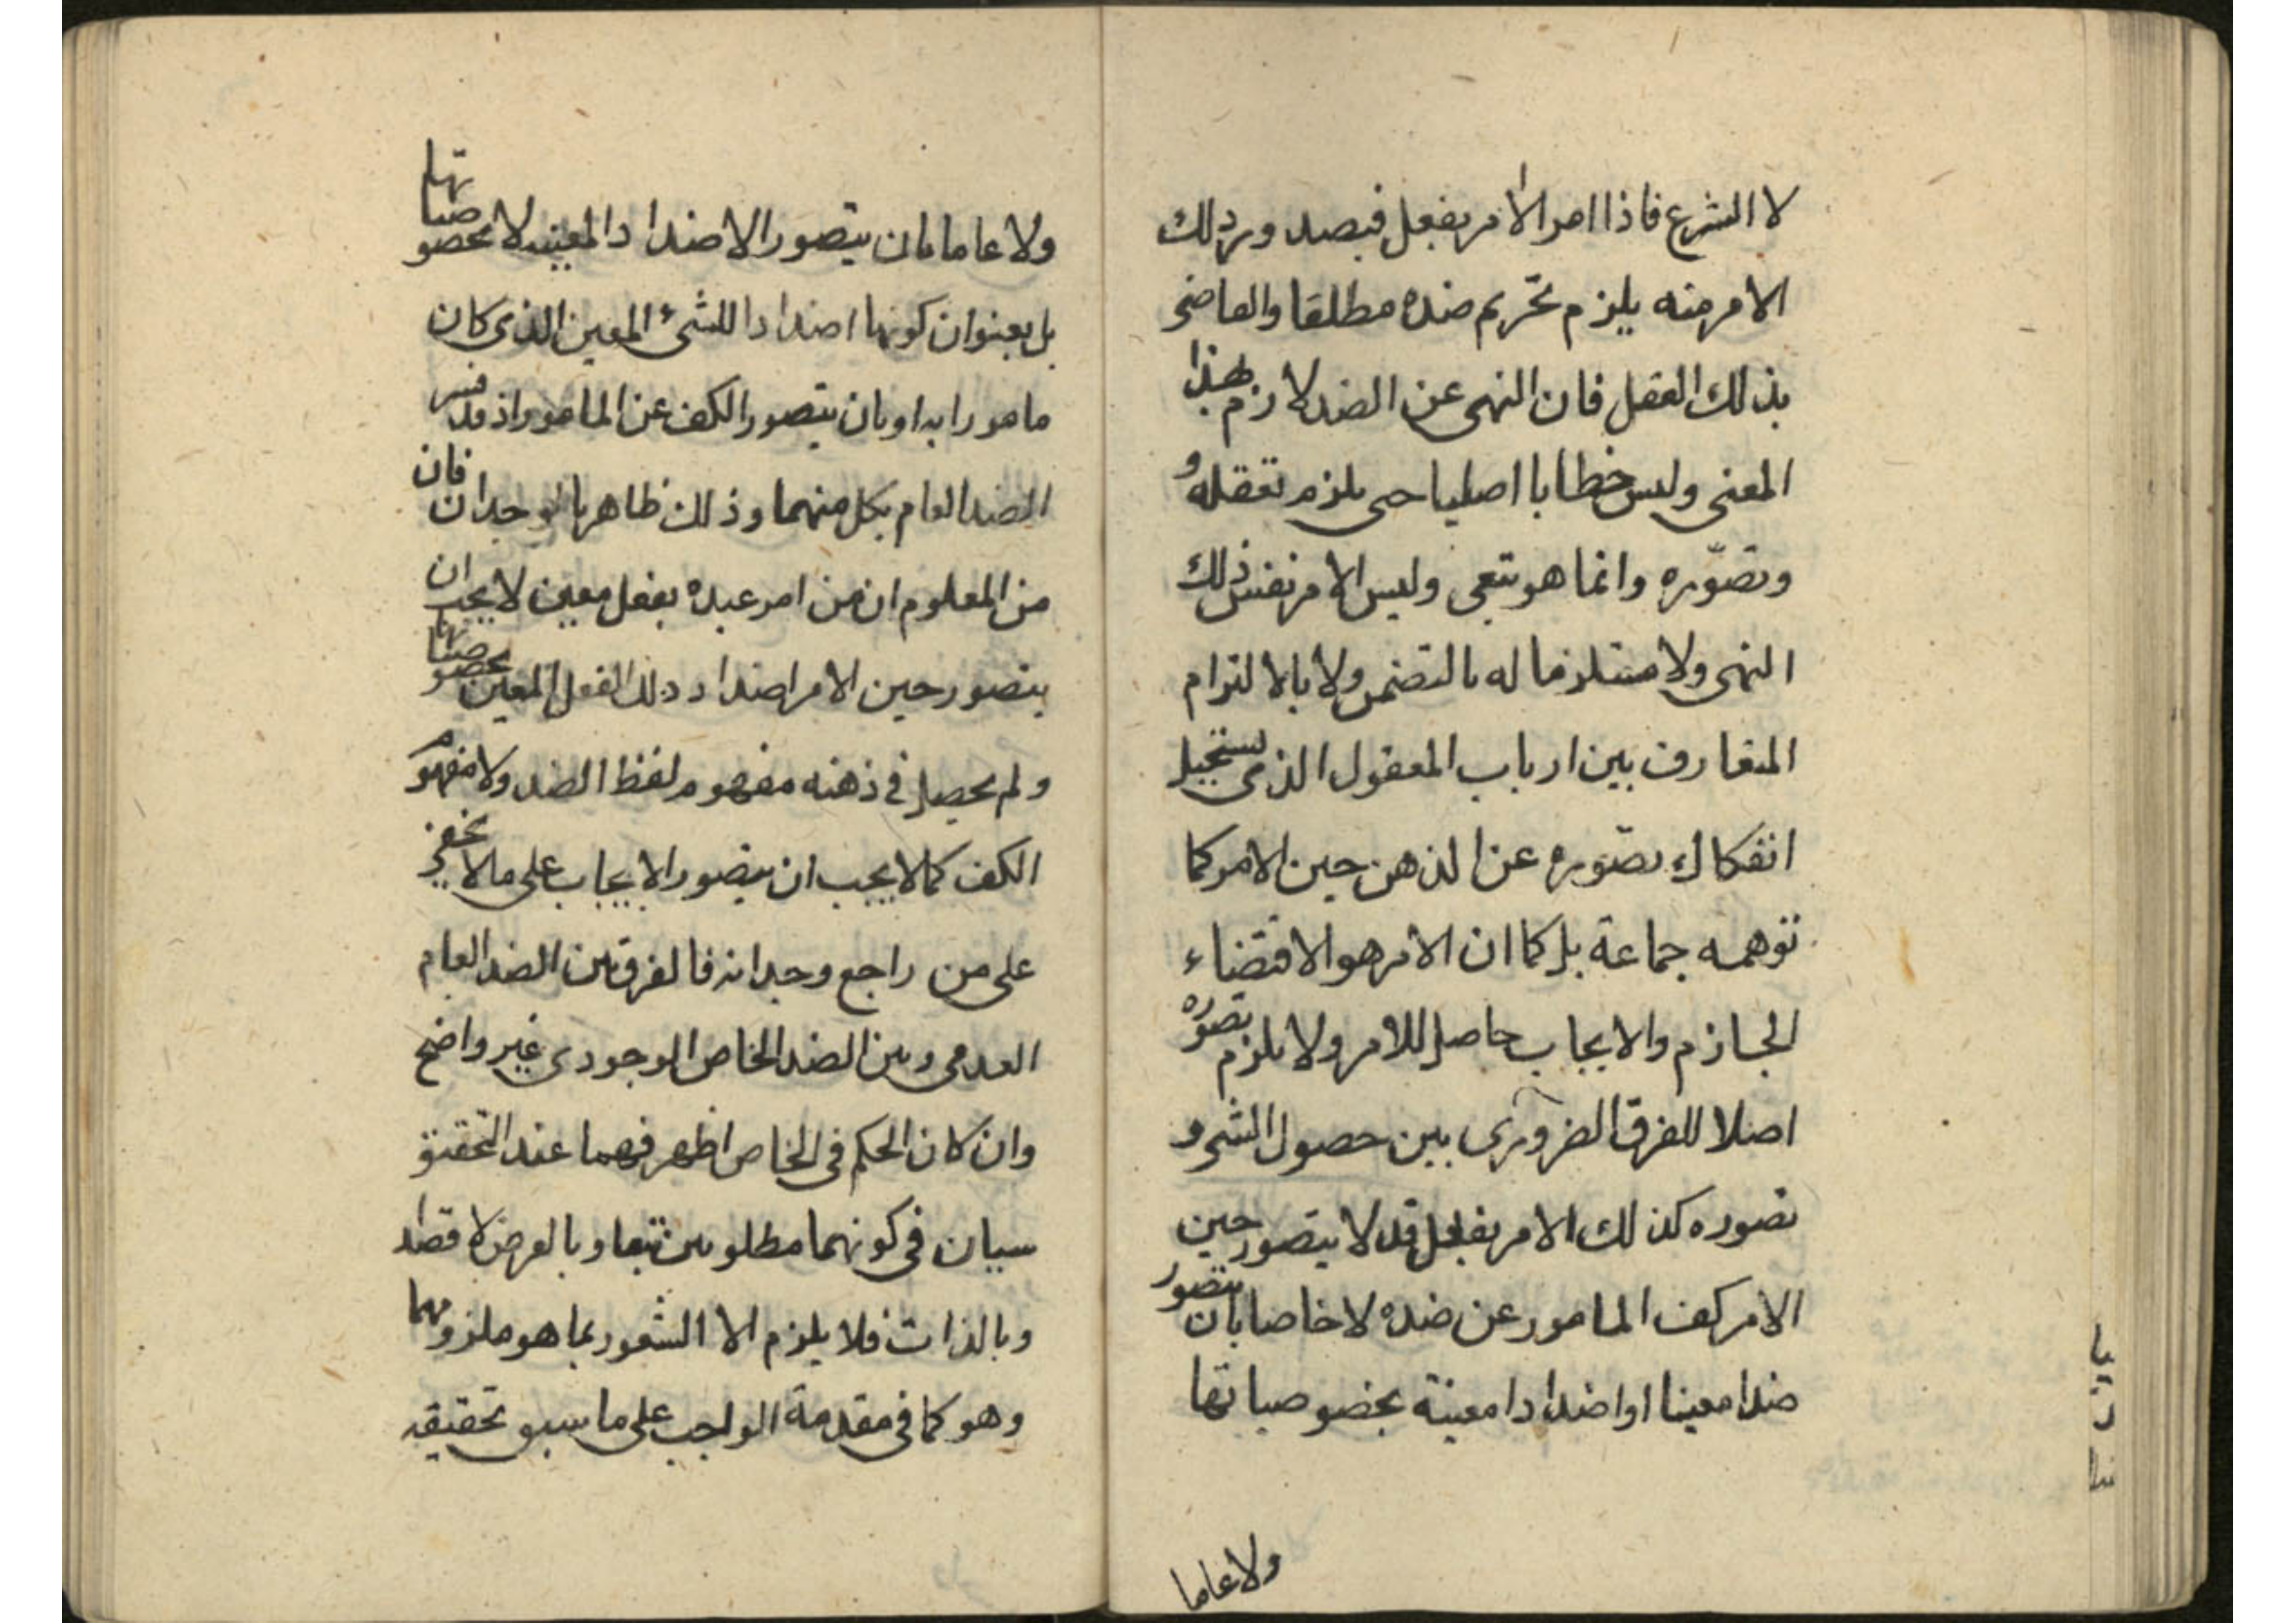 لا الشرع فاذا امر الآمر بفعل فبصدور ذلك
الامر منه يلزم تحريم ضده مطلقا والقاضى
بذلك العقل فان النهى عن الضد لازم بهذا
المعنى وليس خطابا اصليا حتى يلزم تعقله و
وتصوّره وانما هو تبعى وليس الامر نفس ذلك
النهى ولا مستلزما له بالتضمن ولا بالالتزام
المتعارف بين ارباب المعقول الذى يستحيل
انفكاك تصوّره عن الذهن حين الامر كما
توهمه جماعة بل كما ان الامر هو الاقتضاء
الجازم والايجاب حاصل للامر ولا يلزم تصوره
اصلا للفرق الضرورى بين حصول الشئ و
تصوره كذلك الامر بفعل قد لا يتصور حين
الامر كف المامور عن ضده لا خاصا بان يتصور
ضدا معينا او اضدادا معينة بخصوصياتها
ولا عاما
ولا عاما بان يتصور الاضداد المعينه لا بخصوصياتها
بل بعنوان كونها اضدادا للشئ المعين الذى كان
مامورا به او بان يتصور الكف عن المامور اذ قد فسر
الضد العام بكل منهما وذلك ظاهر بالوجدان فان
من المعلوم ان من امر عبده بفعل معين لا يجب ان
يتصور حين الامر اضداد ذلك الفعل المعين بخصوصياتها
ولم يحصل فى ذهنه مفهوم لفظ الضد ولا مفهوم
الكف كما لا يجب ان يتصور الايجاب على ما لا يخفى
على من راجع وجدانه فالفرق بين الضد العام
العدمى وبين الضد الخاص الوجودى غير واضح
وان كان الحكم فى الخاص اظهر فهما عند التحقيق
سيان فى كونهما مطلوبين تبعا وبالعرض لا قصدا
وبالذات فلا يلزم الا الشعور بما هو ملزومهما
وهو كما فى مقدمة الواجب على ما سبق تحقيقه